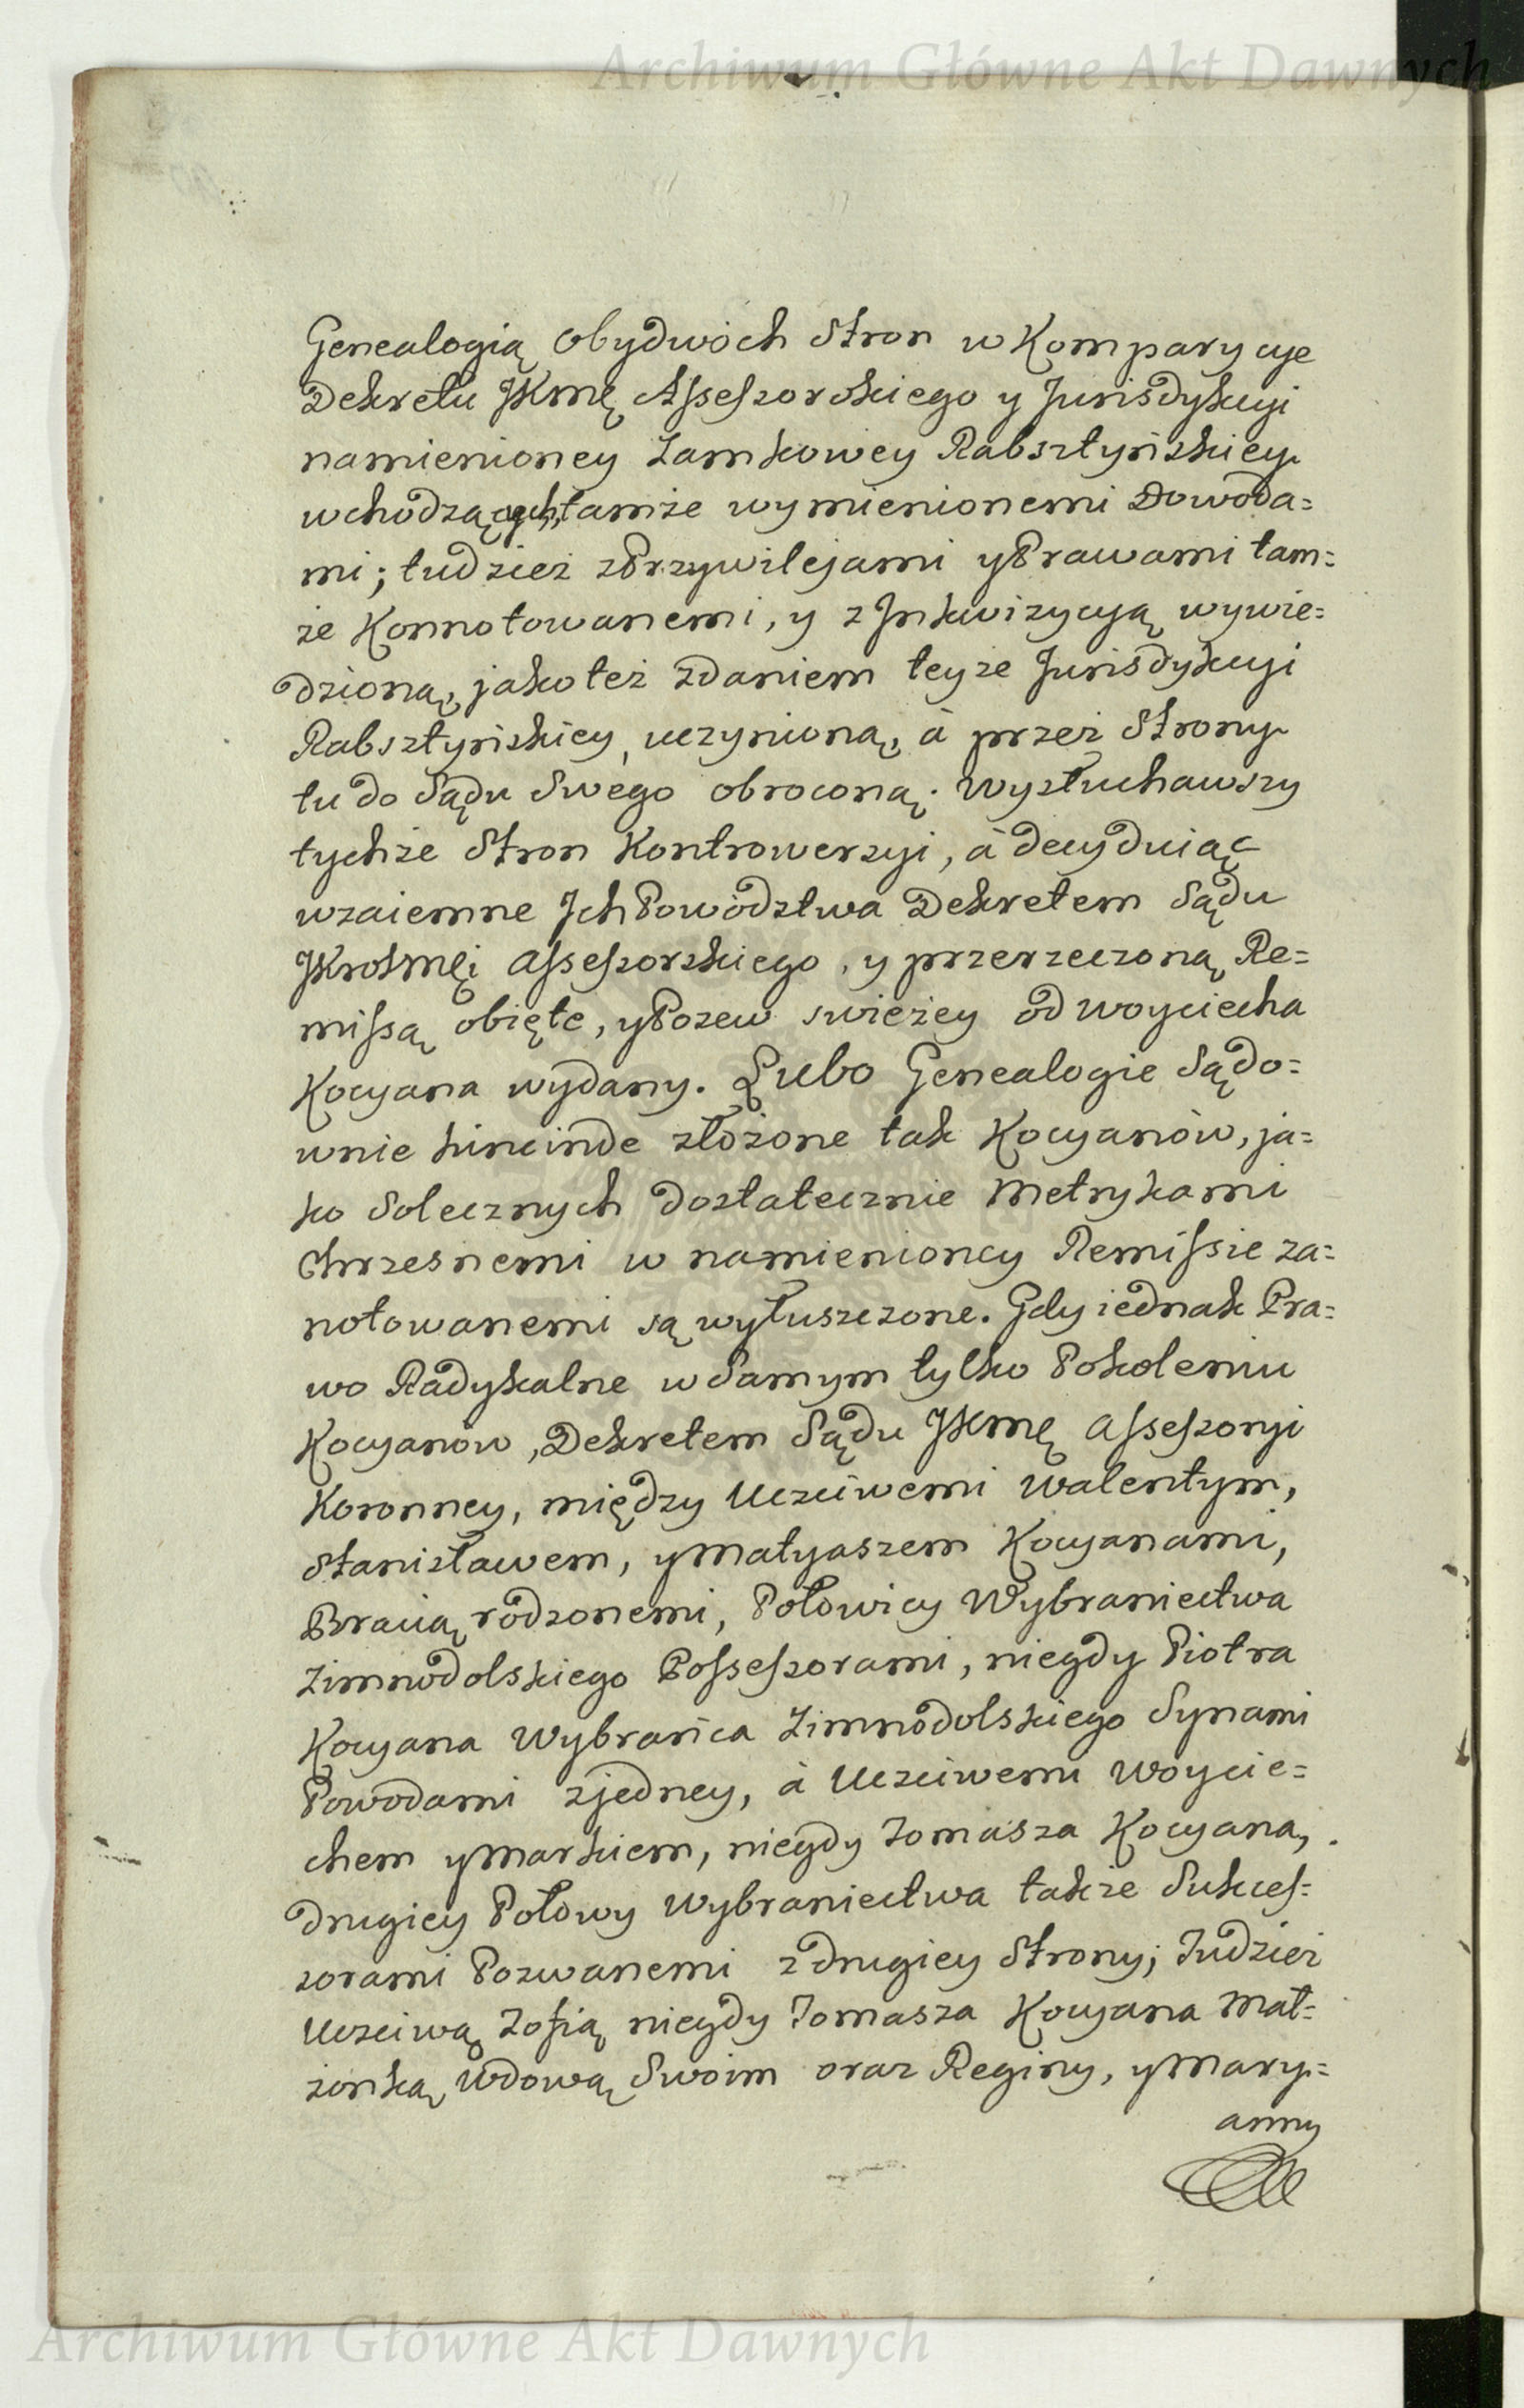 Archiwum Główne Akt Dawnych
Genealogią Obydwóch Stron w Komparycye
Dekretu JKmę Assessorskiego y Jurisdykcyi
namienioney Zamkowey Rabsztyńskiey
wchodzących, tamże wymienionemi Dowoda=
mi; tudzież z Przywilejami y Prawami tam=
że Konnotowanemi, y z Inkwizycyą wywie=
dzioną, jako też Zdaniem teyże Jurisdykcyi
Rabsztyńskiey, uczynioną, à przez Strony
tu do Sądu Swego obroconą. Wysłuchawszy
tychże Stron Kontrowersyi, à decyduiąc
wzaiemne Ich Powództwa Dekretem Sądu
JKrolMęi Assessorskiego, y przerzeczoną Re=
missą obięte, y Pozew swieżey od Woyciecha
Kocyana wydany. Lubo Genealogie Sądo=
wnie hincinde złożone tak Kocyanów, ja=
ko Solecznych dostatecznie Metrykami
Chrzesnemi w namienioney Remissie za=
notowanemi są wyłuszczone. Gdy iednak Pra=
wo Radykalne w Samym tylko Pokoleniu
Kocyanów, Dekretem Sądu JKmę Assessoryi
Koronney, między Uczciwemi Walentym,
Stanisławem, y Matyaszem Kocyanami,
Bracią rodzonemi, Połowicy Wybraniectwa
Zimnodolskiego Possessorami, niegdy Piotra
Kocyana Wybrańca Zimnodolskiego Synami
Powodami z jedney, à Uczciwemi Woycie=
chem y Markiem, niegdy Tomasza Kocyana,
drugiey Połowy Wybraniectwa także Sukces=
sorami Pozwanemi z drugiey Strony; Tudzież
Uczciwą Zofią niegdy Tomasza Kocyana Mał=
żonką, Wdową Swoim oraz Reginy, y Mary=
anny
Archiwum Główne Akt Dawnych